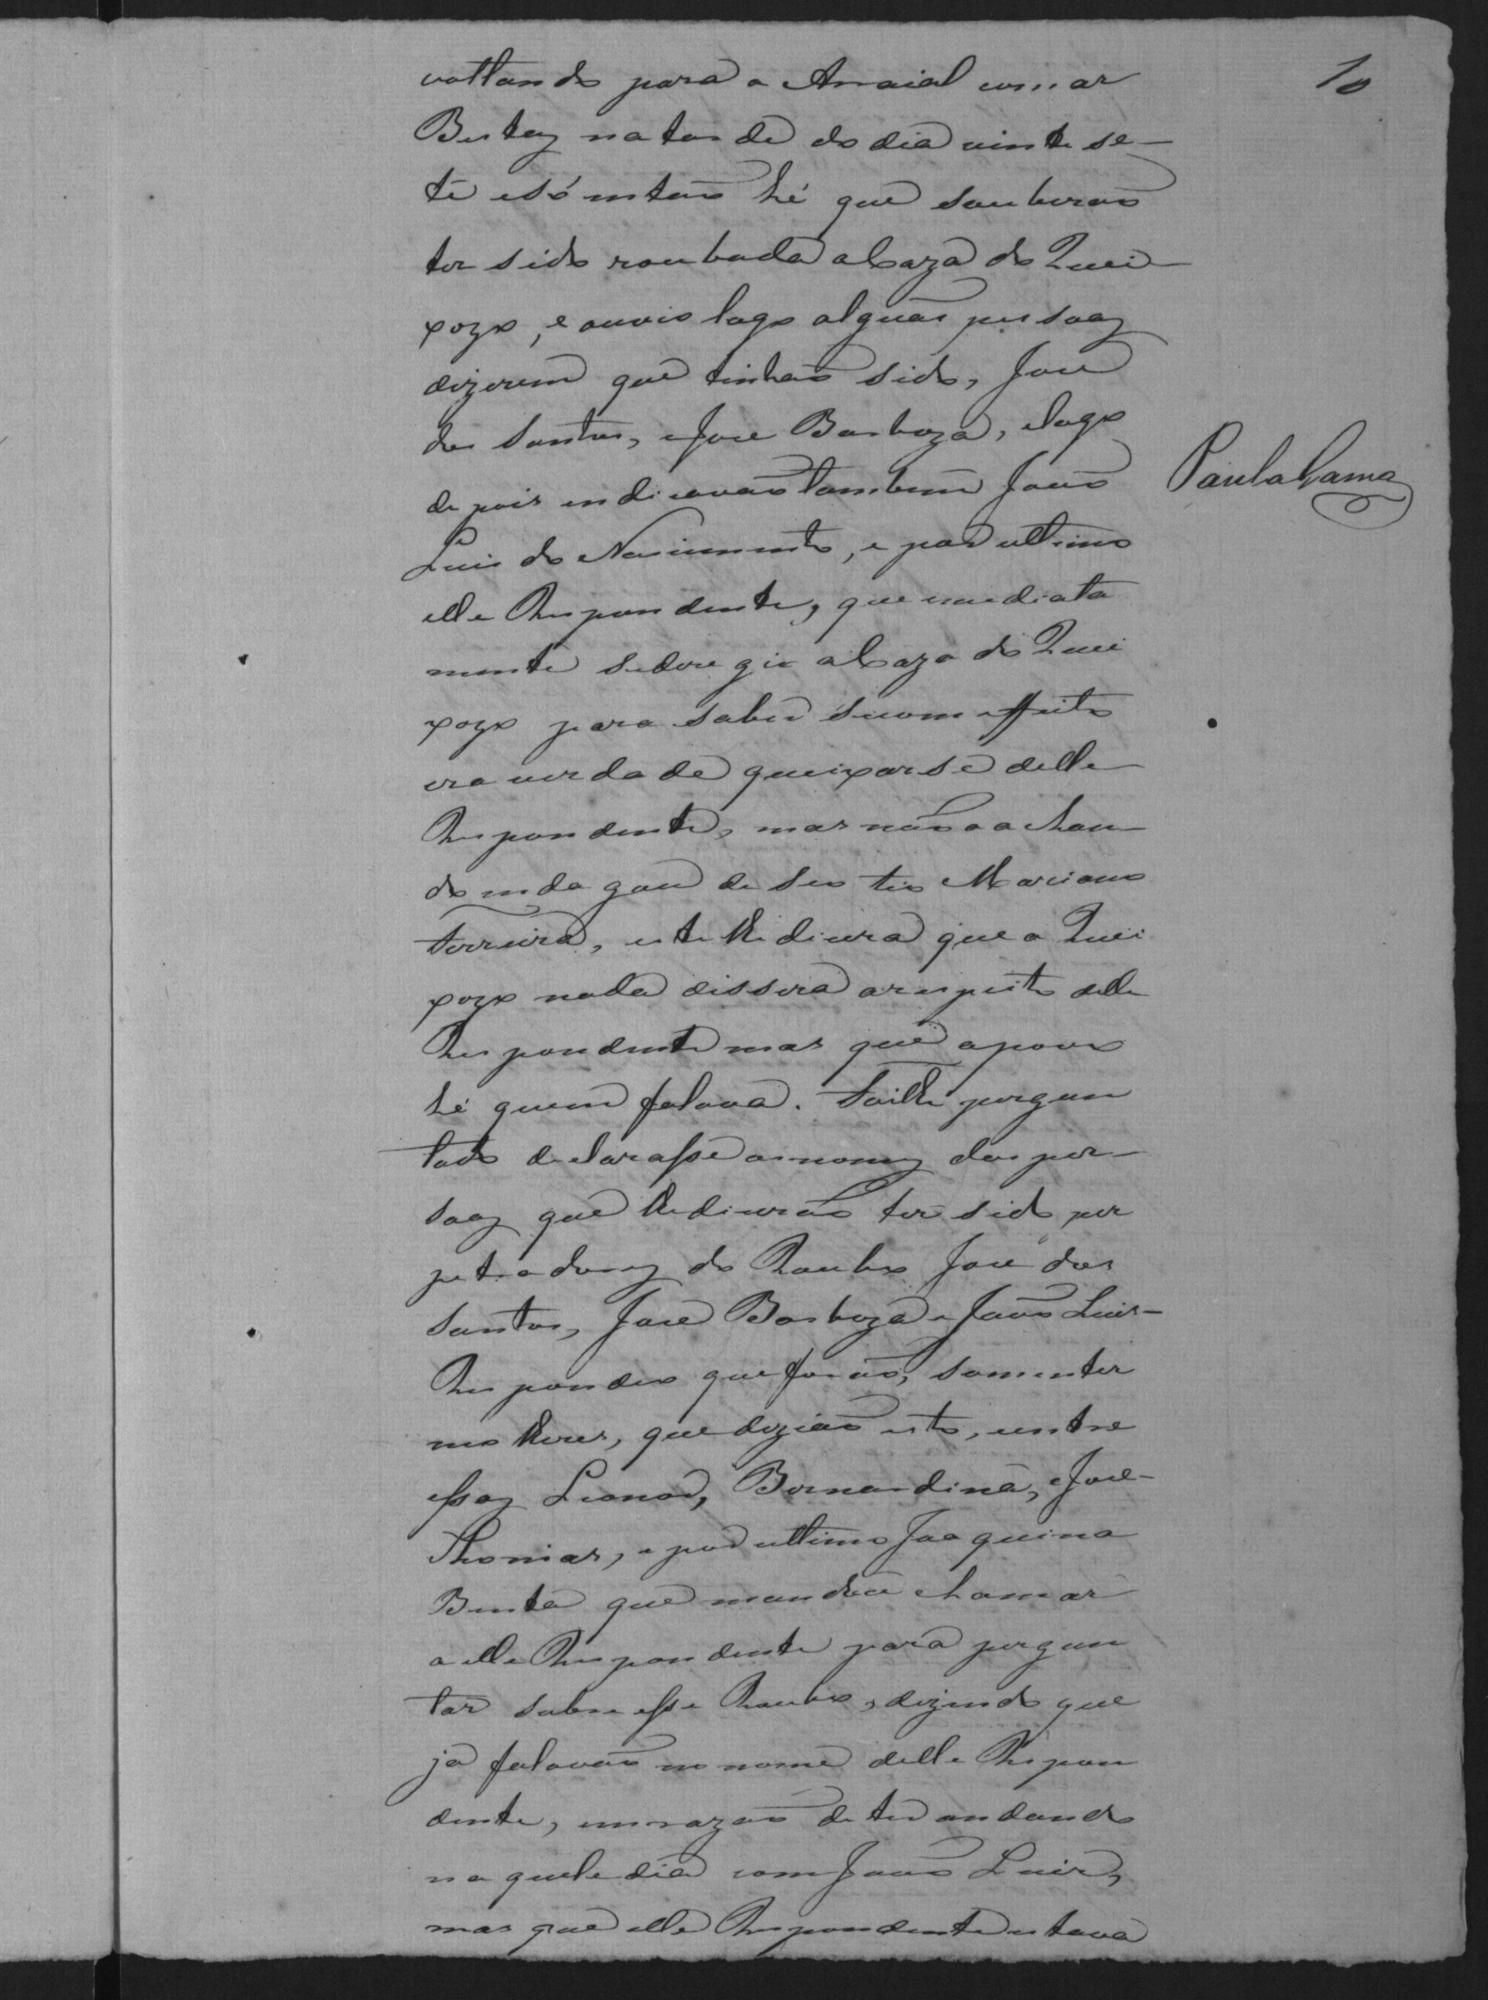 10
voltando para o Arraial com as
Bestas na tarde do dia vinte se-
te e só então hé que souberão
ter sido roubada a Caza do Quei-
xozo, e ouvio logo alguãs pessoas
dizerem que tinhão sido, José
dos Santos, e José Barboza, e logo
depois indicavão tambem João
Luis do Nascimento, e por ultimo
elle Respondente, que imediata
mente se deregio a Caza do Quei
xozo para saber se com effeito
era verdade queixarse delle
Respondente, mas não o achan-
do indagou de seo tio Marciano
Ferreira, este lhe dicera que o Quei
xozo nada dissera a respeito delle
Respondente mas que o povo
hé quem falava. Foi lhe pergun
tado declarasse os nomes das pes-
soas que lhe dicerão ter sido per
petradores do Roubo José dos
Santos, José Barboza e João Luis-
Respondeo que forão, somente
molheres, que dizião isto, e entre
essas Leonor, Bernardina, e José-
Thomas, e por ultimo Joaquina
Benta que mandou chamar
a elle Respondente para pergun
tar sobre esse Roubo, dizendo que
já falavão no nome delle Respon
dente, em razão de ter andando
naquele dia com João Luis,
mas que elle Respondente estava
Paula Lama